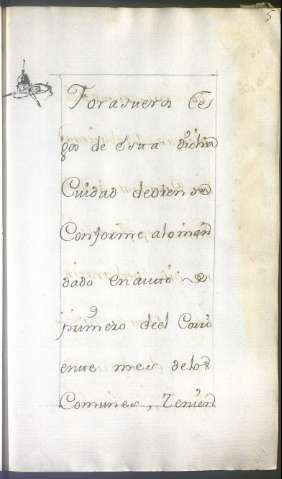 5
Forasuera Ces
gos de esta dicha
Ciudad deoren
Conforme alo man
dado en auto
primero deel Corri
ente mes delos
Comunes, Tenien